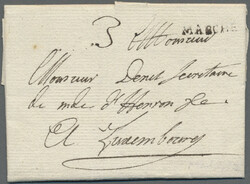 3 Monsieur MARCHE
Monsieur Denet Secretaire
de mde d'
A Luxembourg